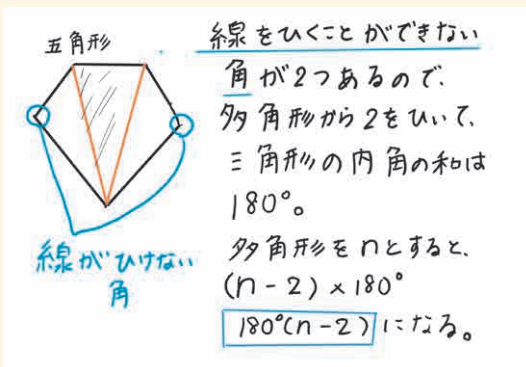 五角形
線がひけない
角
線をひくことができない
角が2つあるので、
多角形から2をひいて、
三角形の内角の和は
180°。
多角形をnとすると、
(n-2)×180°
180°(n-2)になる。